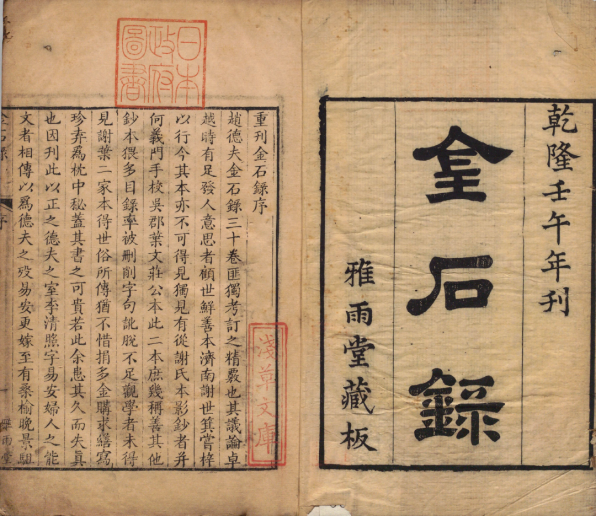 乾隆壬午年刊
金石錄
雅雨堂藏板
重刊金石錄序
趙德夫金石錄三十卷匪獨考訂之精覈也其議論卓
越時有足發人意思者顧世鮮善本濟南謝世箕嘗梓
以行今其本亦不可得見獨見有從謝氏本影鈔者并
何義門手校吳郡葉文莊公本此二本庶幾稱善其他
鈔本猥多目錄率被刪削字句訛脫不足觀學者未得
見謝葉二家本得世俗所傳猶不惜捐多金購求繕寫
珍弆為枕中秘蓋其書之可貴若此余患其久而失真
也因刊此以正之德夫之室李清照字易安婦人之能
文者相傳以爲德夫之歿易安更嫁至有桑榆晚景駔
金石錄 序
雅雨堂
日本
政府
圖書
淺草文庫